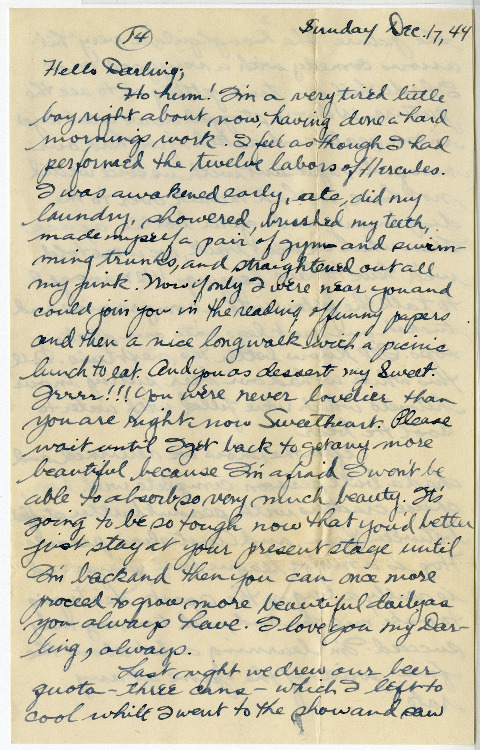 14
Sunday Dec. 17, 44
Hello Darling;
Ho hum! I'm a very tired little
boy right about now, having done a hard
morning's work. I feel as though I had
performed the twelve labors of Hercules.
I was awakened early, ate, did my
laundry, showered, brushed my teeth,
made myself a pair of gym and swim-
ming trunks, and straightened out all
my junk. Now if only I were near you and
could join you in the reading of funny papers
and then a nice long walk with a picnic
lunch to eat. And you as dessert my Sweet.
Grrrr!!! You were never lovelier than
you are right now Sweetheart. Please
wait until I get back to get any more
beautiful because I'm afraid I won't be
able to absorb so very much beauty. It's
going to be so tough now that you'd better
just stay at your present stage until
I'm back and then you can once more
proceed to grow more beautiful daily as
you always have. I love you my Dar-
ling, always.
Last night we drew our beer
quota - three cans - which I left to
cool while I went to the show and saw